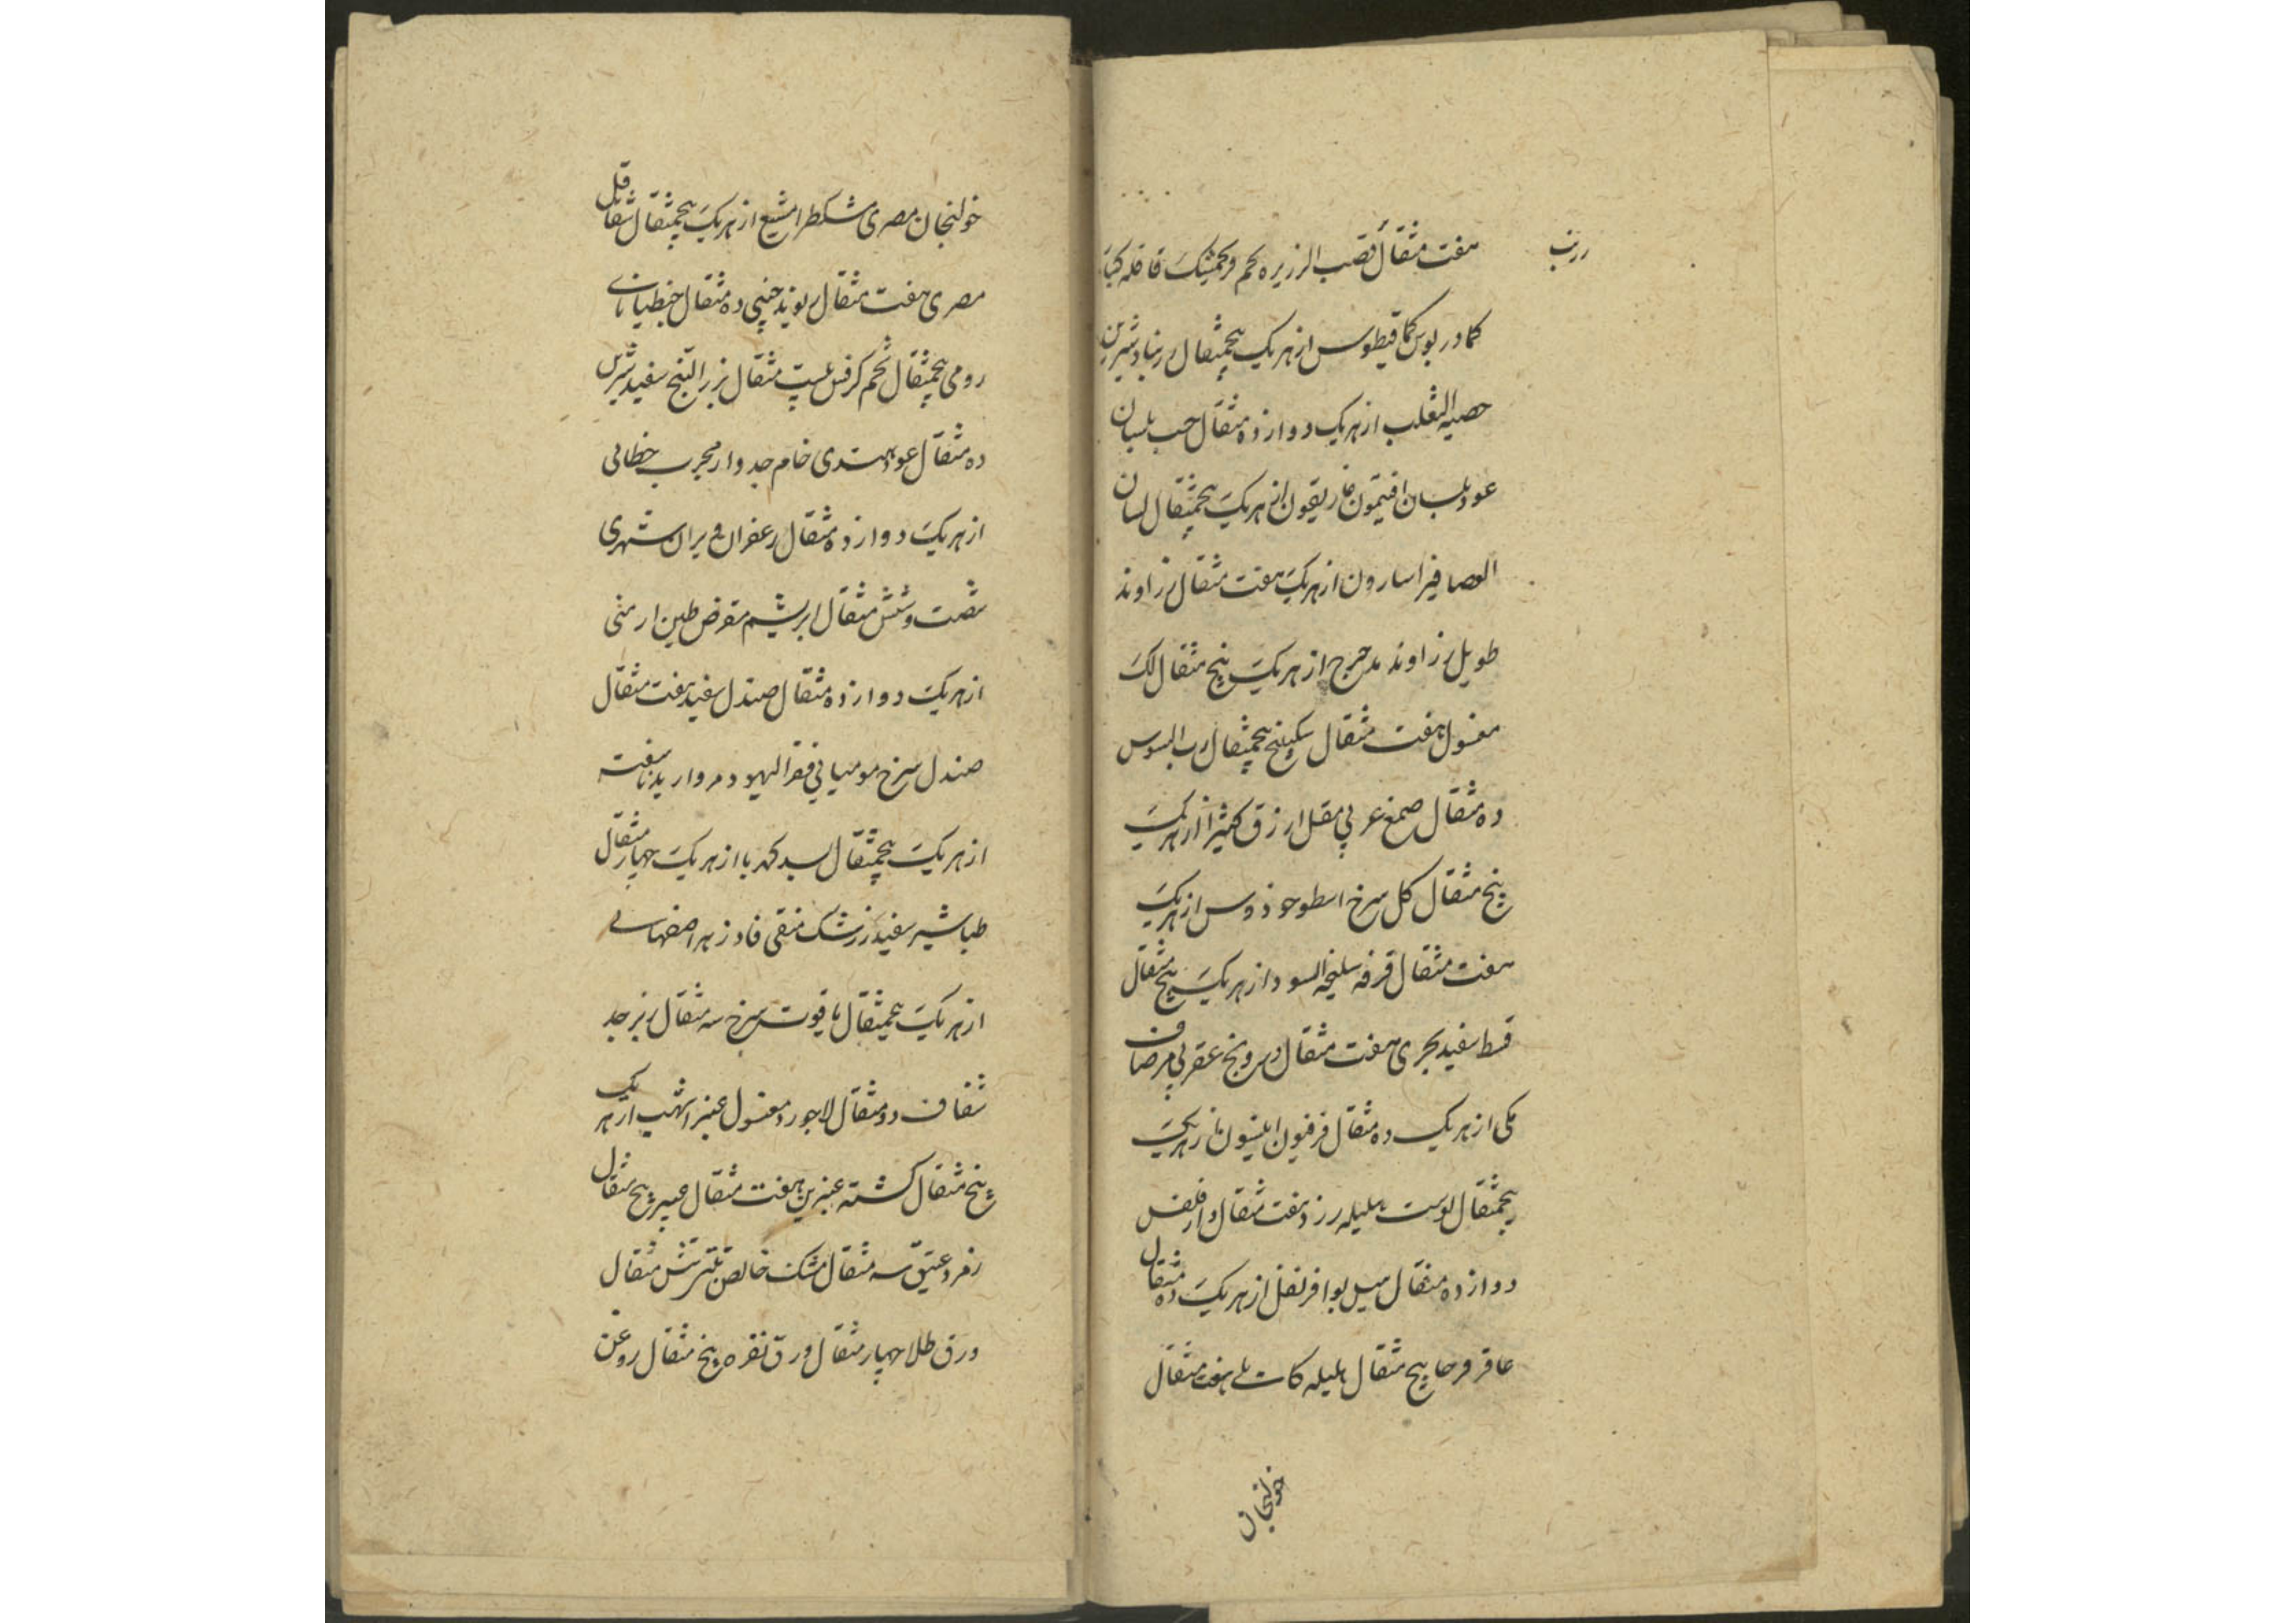 هفت مثقال قصب الزریره تخم فرنجمشک قاقله کبار
زرنب
کمادریوس کمافیطوس از هر یک پنجمثقال زرنباد شیرین
خصیه الثعلب از هر یک دوازده مثقال حب بلسان
عود بلسان افتیمون غاریقون از هر یک پنجمثقال لسان
العصافیر اسارون از هر یک هفت مثقال زراوند
طویل زراوند مدحرج از هر یک پنج مثقال لک
مغسول هفت مثقال سکبینج پنجمثقال رب السوس
ده مثقال صمغ عربی مقل ازرق کثیرا از هر یک
پنج مثقال کل سرخ اسطوخوذوس از هر یک
هفت مثقال قرفه سلیخه السودا از هر یک پنج مثقال
قسط سفید بحری هفت مثقال درونج عقربی مر صاف
مکی از هر یک ده مثقال فرفیون انیسون از هر یک
پنجمثقال پوست هلیله زرد هفت مثقال دارفلفل
دوازده مثقال هیل بوا قرنفل از هر یک ده مثقال
عاقرقرحا پنج مثقال هلیله کابلی هفت مثقال
خولنجان
خولنجان مصری مشکطرامشیع از هر یک پنجمثقال شقاقل
مصری هفت مثقال ریوند چینی ده مثقال جنطیانای
رومی پنجمثقال تخم کرفس بیست مثقال بزر البنج سفید
ده مثقال عود هندی خام جدوار مجرب خطائی
از هر یک دوازده مثقال زعفران شهری
شصت و شش مثقال ابریشم مقرض طین ارمنی
از هر یک دوازده مثقال صندل سفید هفت مثقال
صندل سرخ مومیائی قفر الیهود مروارید ناسفته
از هر یک پنجمثقال بسد کهربا از هر یک چهار مثقال
طباشیر سفید زرشک منقی فادزهر اصفهانی
از هر یک پنجمثقال یاقوت سرخ سه مثقال زبرجد
شفاف دو مثقال لاجورد مغسول عنبر اشهب از هر یک
پنج مثقال کشته عنبرین هفت مثقال عبیر پنج مثقال
زمرد عتیق سه مثقال مشک خالص تبتی شش مثقال
ورق طلا چهار مثقال ورق نقره پنج مثقال روغن